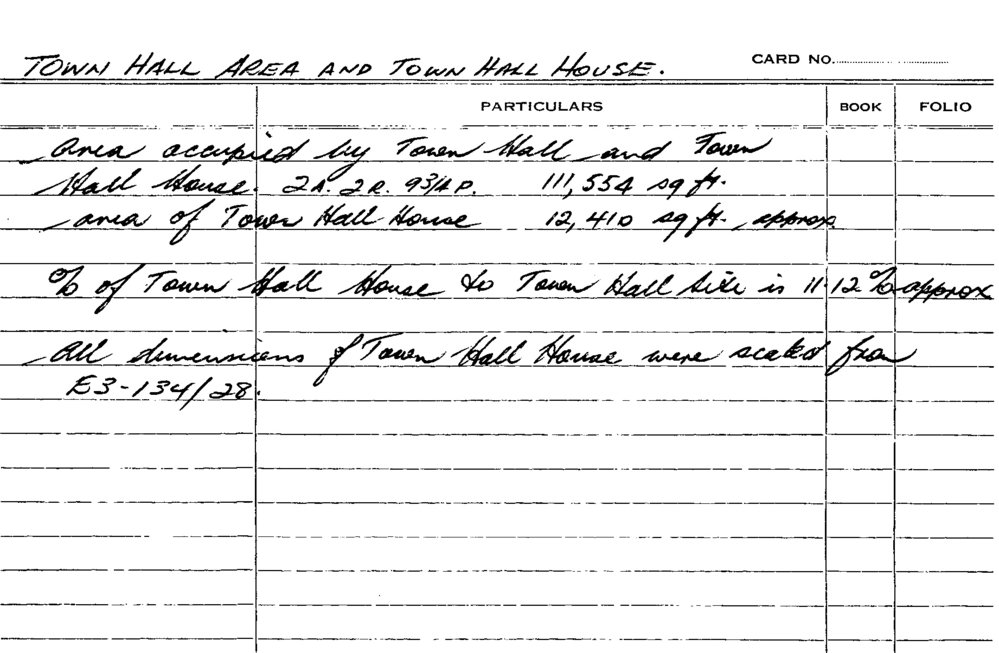 TOWN HALL AREA AND TOWN HALL HOUSE.
CARD No.
PARTICULARS BOOK FOLIO
Area occupied by Town Hall and Town
Hall House. 2A. 2R. 9 3/4 P. 111,554 sq ft.
area of Town Hall House 12,410 sq ft. approx
% of Town Hall House to Town Hall Site is 11.12% approx
All dimensions of Town Hall House were scaled from
E3-134/28.